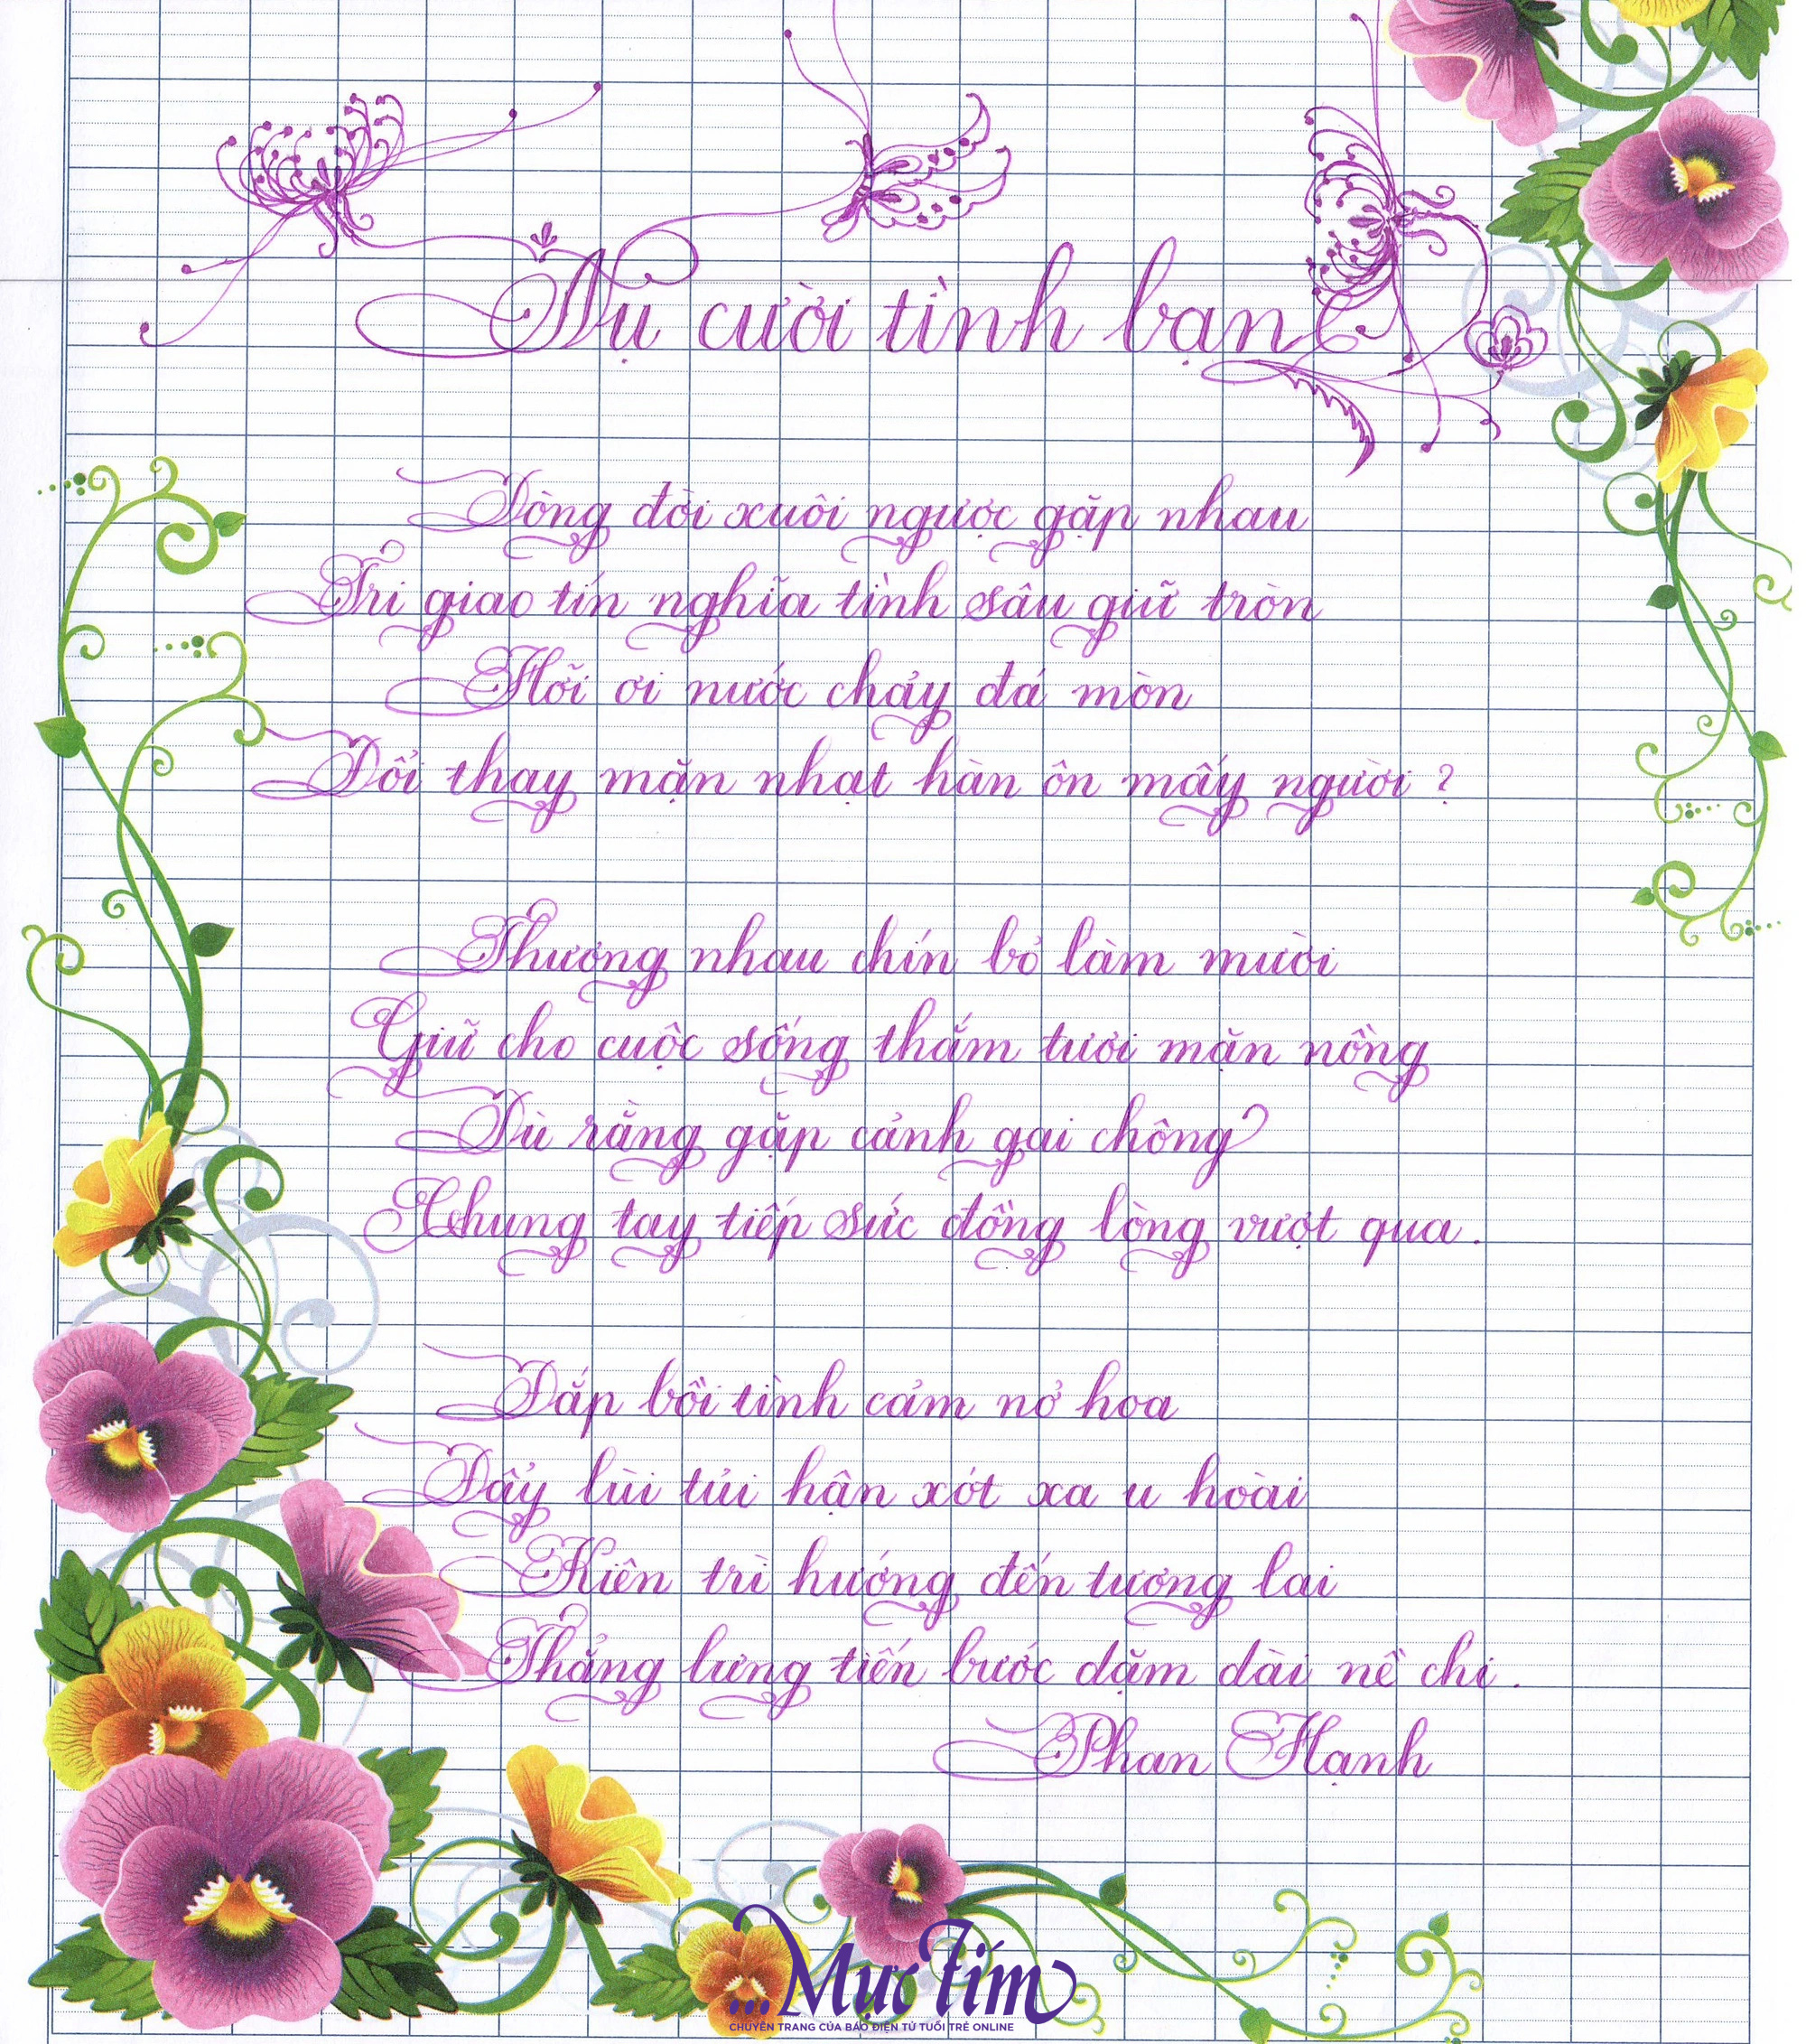 Nụ cười tình bạn
Dòng đời xuôi ngược gặp nhau
Tri giao tín nghĩa tình sâu giữ tròn
Hỡi ơi nước chảy đá mòn
Đổi thay mặn nhạt hàn ôn mấy người ?
Thương nhau chín bỏ làm mười
Giữ cho cuộc sống thắm tươi mặn nồng
Dù rằng gặp cảnh gai chông
Chung tay tiếp sức đồng lòng vượt qua.
Đắp bồi tình cảm nở hoa
Đẩy lùi tủi hận xót xa u hoài
Kiên trì hướng đến tương lai
Thẳng lưng tiến bước dặm dài nề chi.
Phan Hạnh
...Mực Tím
CHUYÊN TRANG CỦA BÁO ĐIỆN TỬ TUỔI TRẺ ONLINE